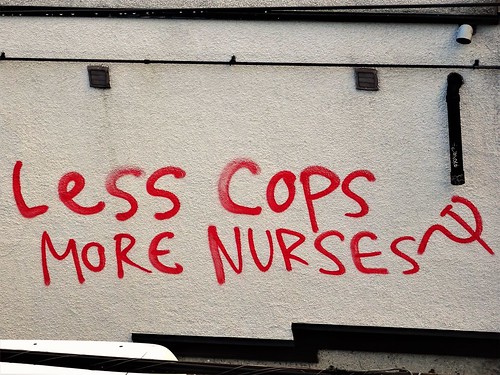 Less Cops
MORE NURSES